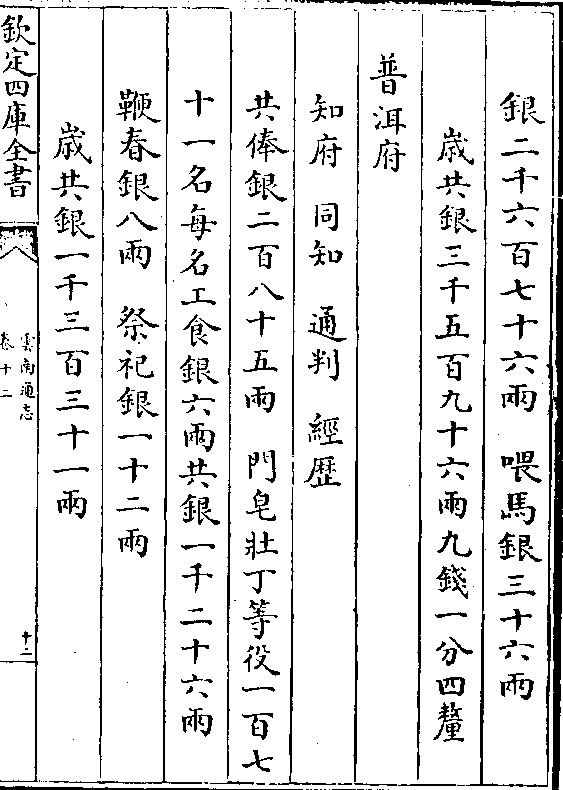 銀二千六百七十六兩　喂馬銀三十六兩
歲共銀三千五百九十六兩九錢一分四釐
普洱府
知府　同知　通判　經歴
共俸銀二百八十五兩　門皂壯丁等役一百七
十一名每名工食銀六兩共銀一千二十六兩
鞭春銀八兩　祭祀銀一十二兩
歲共銀一千三百三十一兩
欽定四庫全書
雲南通志
卷十二
十二